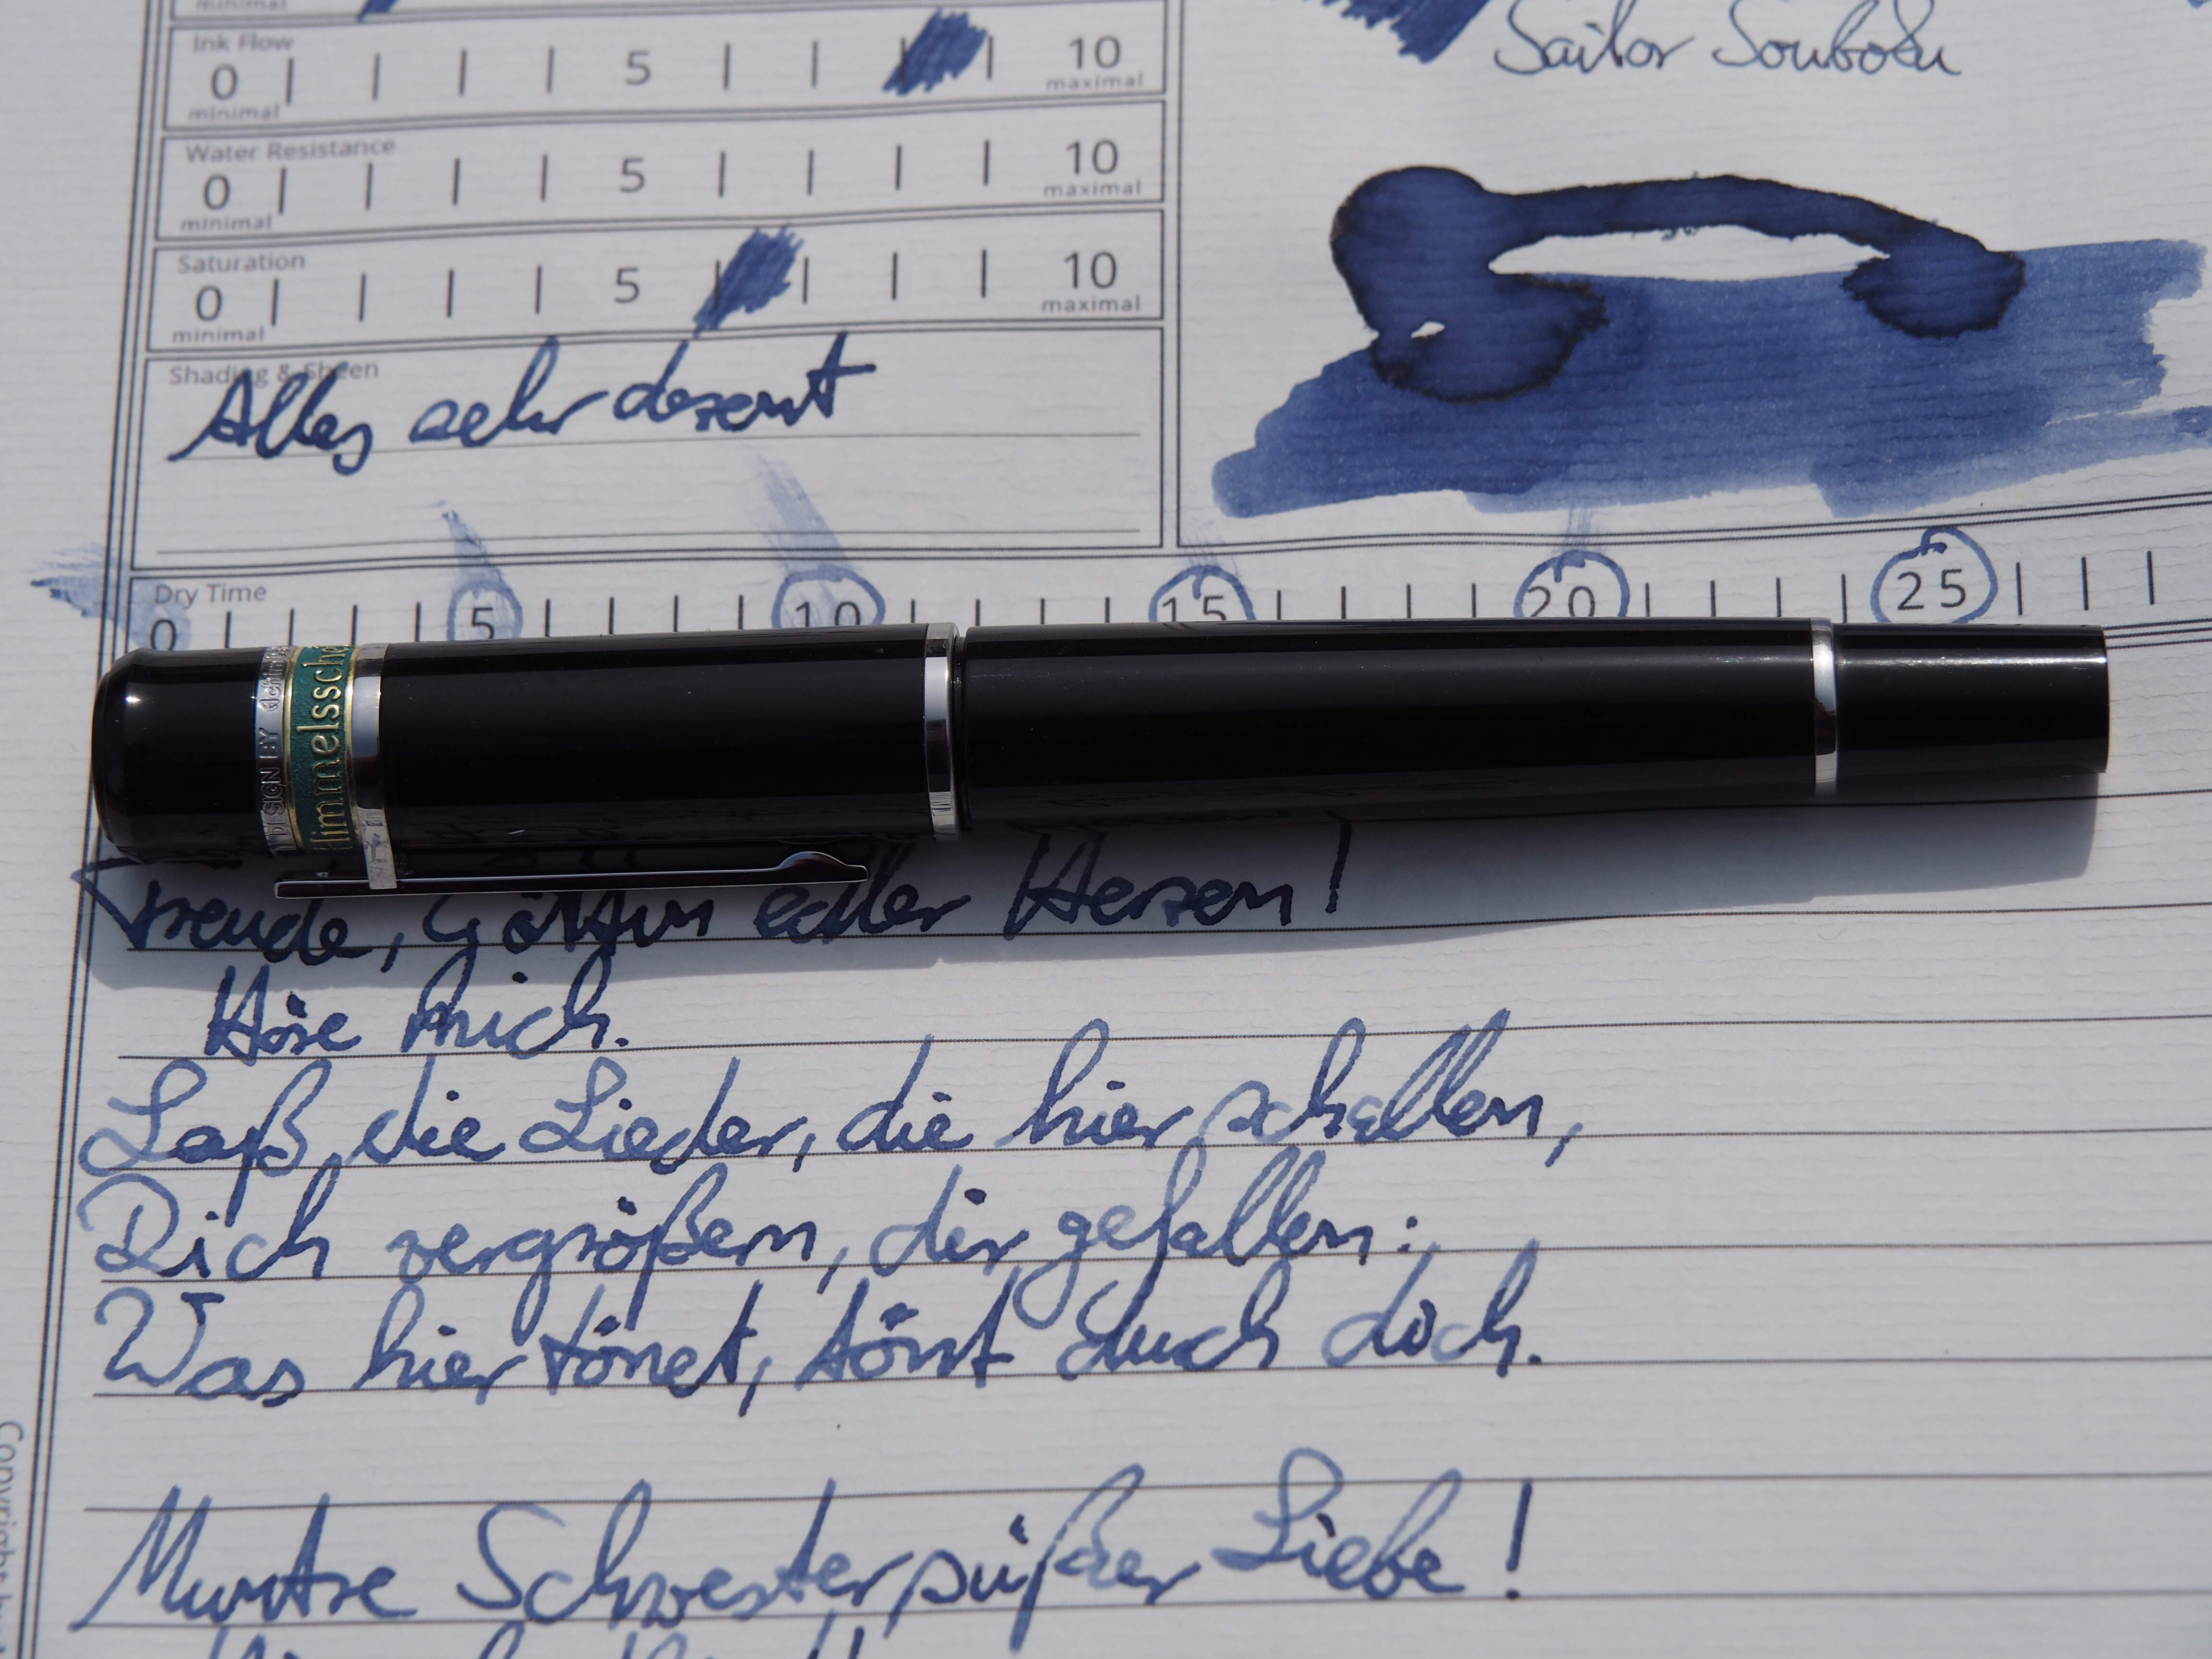 minimal
Ink Flow
0 5 10
minimal maximal
Water Resistance
0 5 10
minimal maximal
Saturation
0 5 10
minimal maximal
Shading & Sheen
Alles sehr dezent
Sailor Souboku
Dry Time
0 5 10 15 20 25
DESIGN BY
Himmelssche
Freude, Göttin edler Herzen!
Höre mich.
Laß die Lieder, die hier schallen,
Dich vergrößern, dir gefallen:
Was hier tönet, tönt durch dich.
Muntre Schwester süßer Liebe!
Copyright